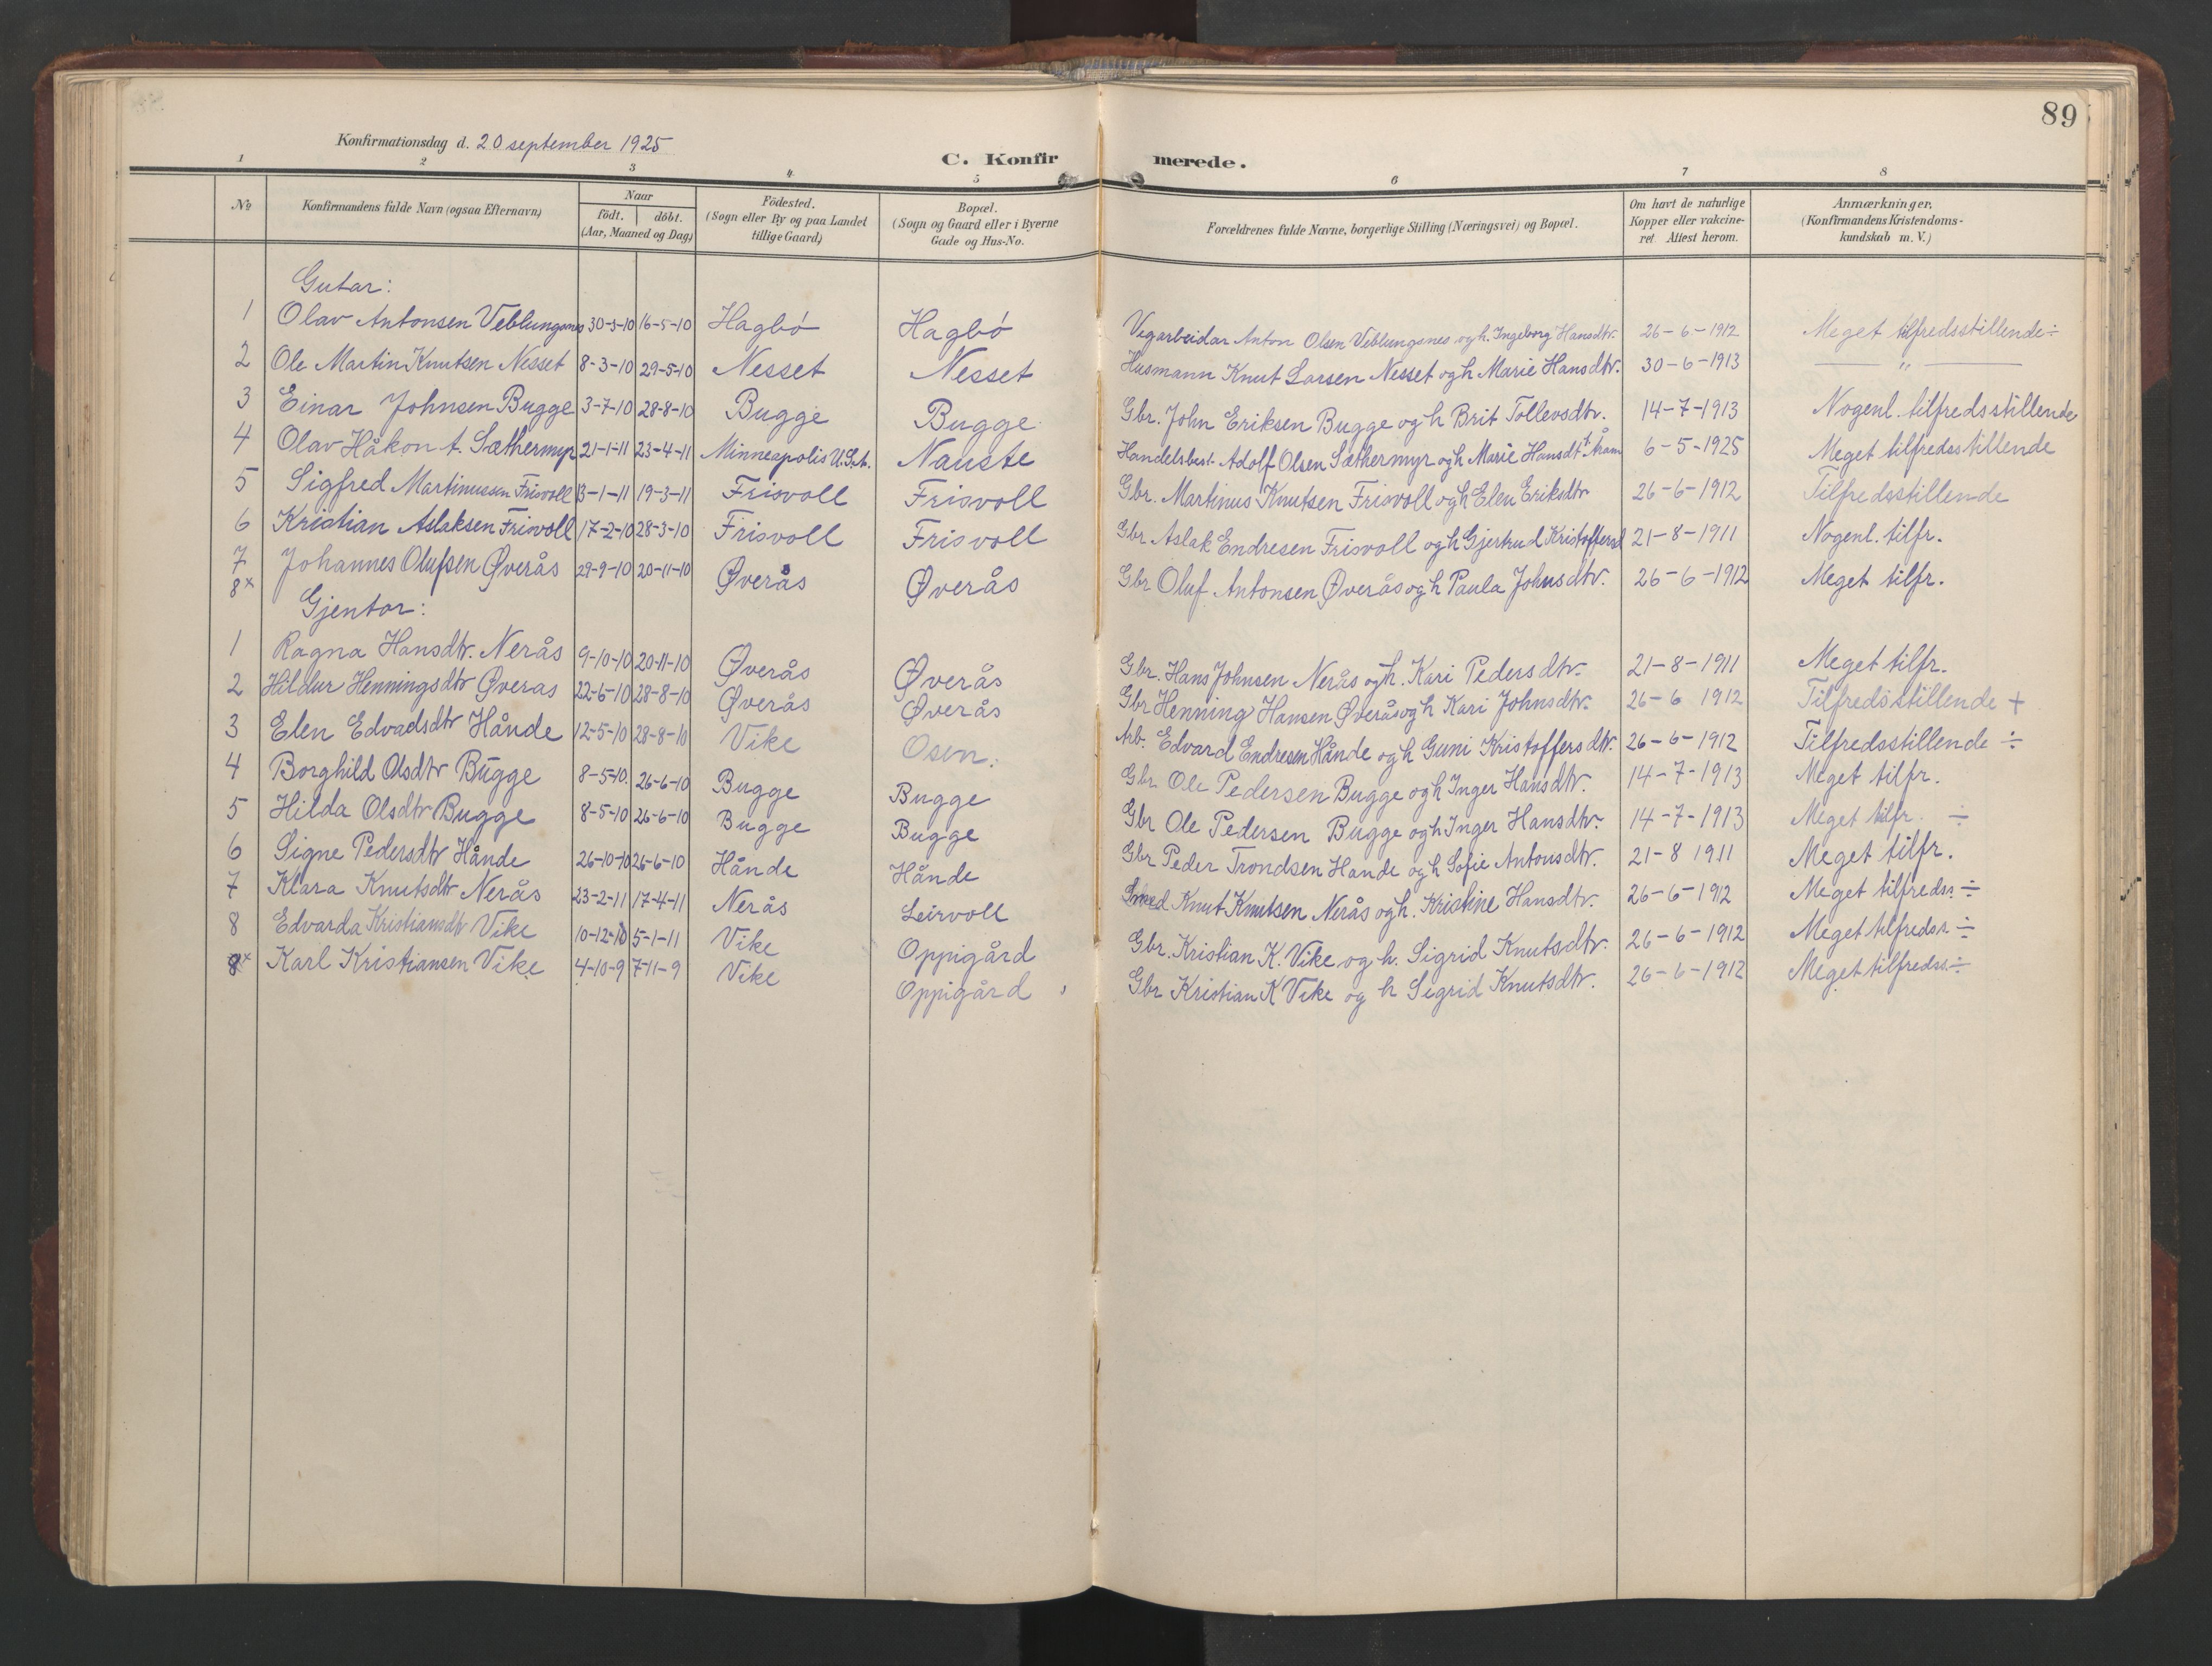 89
Konfirmationsdag d. 20 september 1925
C. Konfirmerede.
1 2 3 4 5 6 7 8
No
Konfirmandens fulde Navn (ogsaa Efternavn)
Naar
födt. döbt.
(Aar, Maaned og Dag)
Födested.
(Sogn eller By og paa Landet
tillige Gaard)
Bopæl.
(Sogn og Gaard eller i Byerne
Gade og Hus-No.
Forældrenes fulde Navne, borgerlige Stilling (Næringsvei) og Bopæl.
Om havt de naturlige
Kopper eller vakcine-
ret. Attest herom.
Anmærkninger.
(Konfirmandens Kristendoms-
kundskab m. V.)
Gutar:
1 Olav Antonsen Veblungsnes 30-3-10 16-5-10 Hagbö Hagbö Vegarbeidar Anton Olsen Veblungsnes og h. Ingeborg Hansdtr. 26-6-1912 Meget tilfredsstillende ÷
2 Ole Martin Knutsen Nesset 8-3-10 29-5-10 Nesset Nesset Husmann Knut Larsen Nesset og h Marie Hansdtr. 30-6-1913 — " —
3 Einar Johnsen Bugge 3-7-10 28-8-10 Bugge Bugge Gbr. John Eriksen Bugge og h Brit Tollevsdtr. 14-7-1913 Nogenl. tilfredsstillende
4 Olav Håkon A. Sæthermyr 21-1-11 23-4-11 Minneapolis U.S.A. Nauste Handelsbest. Adolf Olsen Sæthermyr og h Marie Hansdt 6-5-1925 Meget tilfredsstillende
5 Sigfred Martinussen Frisvoll 13-1-11 19-3-11 Frisvoll Frisvoll Gbr. Martinus Knutsen Frisvoll og h Elen Eriksdtr 26-6-1912 Tilfredsstillende
6 Kristian Aslaksen Frisvoll 17-2-10 28-3-10 Frisvoll Frisvoll Gbr Aslak Endresen Frisvoll og h Gjertrud Kristoffersd 21-8-1911 Nogenl. tilfr.
7 Johannes Olufsen Øverås 29-9-10 20-11-10 Øverås Øverås Gbr Oluf Antonsen Øverås og h Paula Johnsdtr. 26-6-1912 Meget tilfr.
8x
Gjentor:
1 Ragna Hansdtr. Nerås 9-10-10 20-11-10 Øverås Øverås Gbr. Hans Johnsen Nerås og h. Kari Pedersdtr. 21-8-1911 Meget tilfr.
2 Hildur Henningsdtr Øveras 22-6-10 28-8-10 Øverås Øverås Gbr Henning Hansen Øverås og h Kari Johnsdtr. 26-6 1912 Tilfredsstillende +
3 Elen Edvadsdtr Hånde 12-5-10 28-8-10 Vike Osen. Arb. Edvard Endresen Hånde og h Guni Kristoffersdtr. 26-6-1912 Tilfredsstillende ÷
4 Borghild Olsdtr Bugge 8-5-10. 26-6-10 Bugge Bugge Gbr Ole Pedersen Bugge og h Inger Hansdtr. 14-7-1913 Meget tilfr.
5 Hilda Olsdtr Bugge 8-5-10 26-6-10 Bugge Bugge Gbr Ole Pedersen Bugge og h Inger Hansdtr. 14-7-1913 Meget tilfr. ÷
6 Signe Pedersdtr Hånde 26-10-10 26-6-10 Hånde Hånde Gbr Peder Trondsen Hande og h Sofie Antonsdtr. 21-8 1911 Meget tilfr.
7 Klara Knutsdtr Nerås 23-2-11 17-4-11 Nerås Leirvoll Smed Knut Knutsen Nerås og h. Kristine Hansdtr. 26-6-1912 Meget tilfredss. ÷
8 Edvarda Kristiansdtr Vike 10-12-10 5-1-11 Vike Oppigård Gbr. Kristian K. Vike og h. Sigrid Knutsdtr. 26-6-1912 Meget tilfredss ÷
8x Karl Kristiansen Vike 4-10-9 7-11-9 Vike Oppigård Gbr Kristian K Vike og h Sigrid Knutsdtr. 26-6-1912 Meget tilfredss. ÷